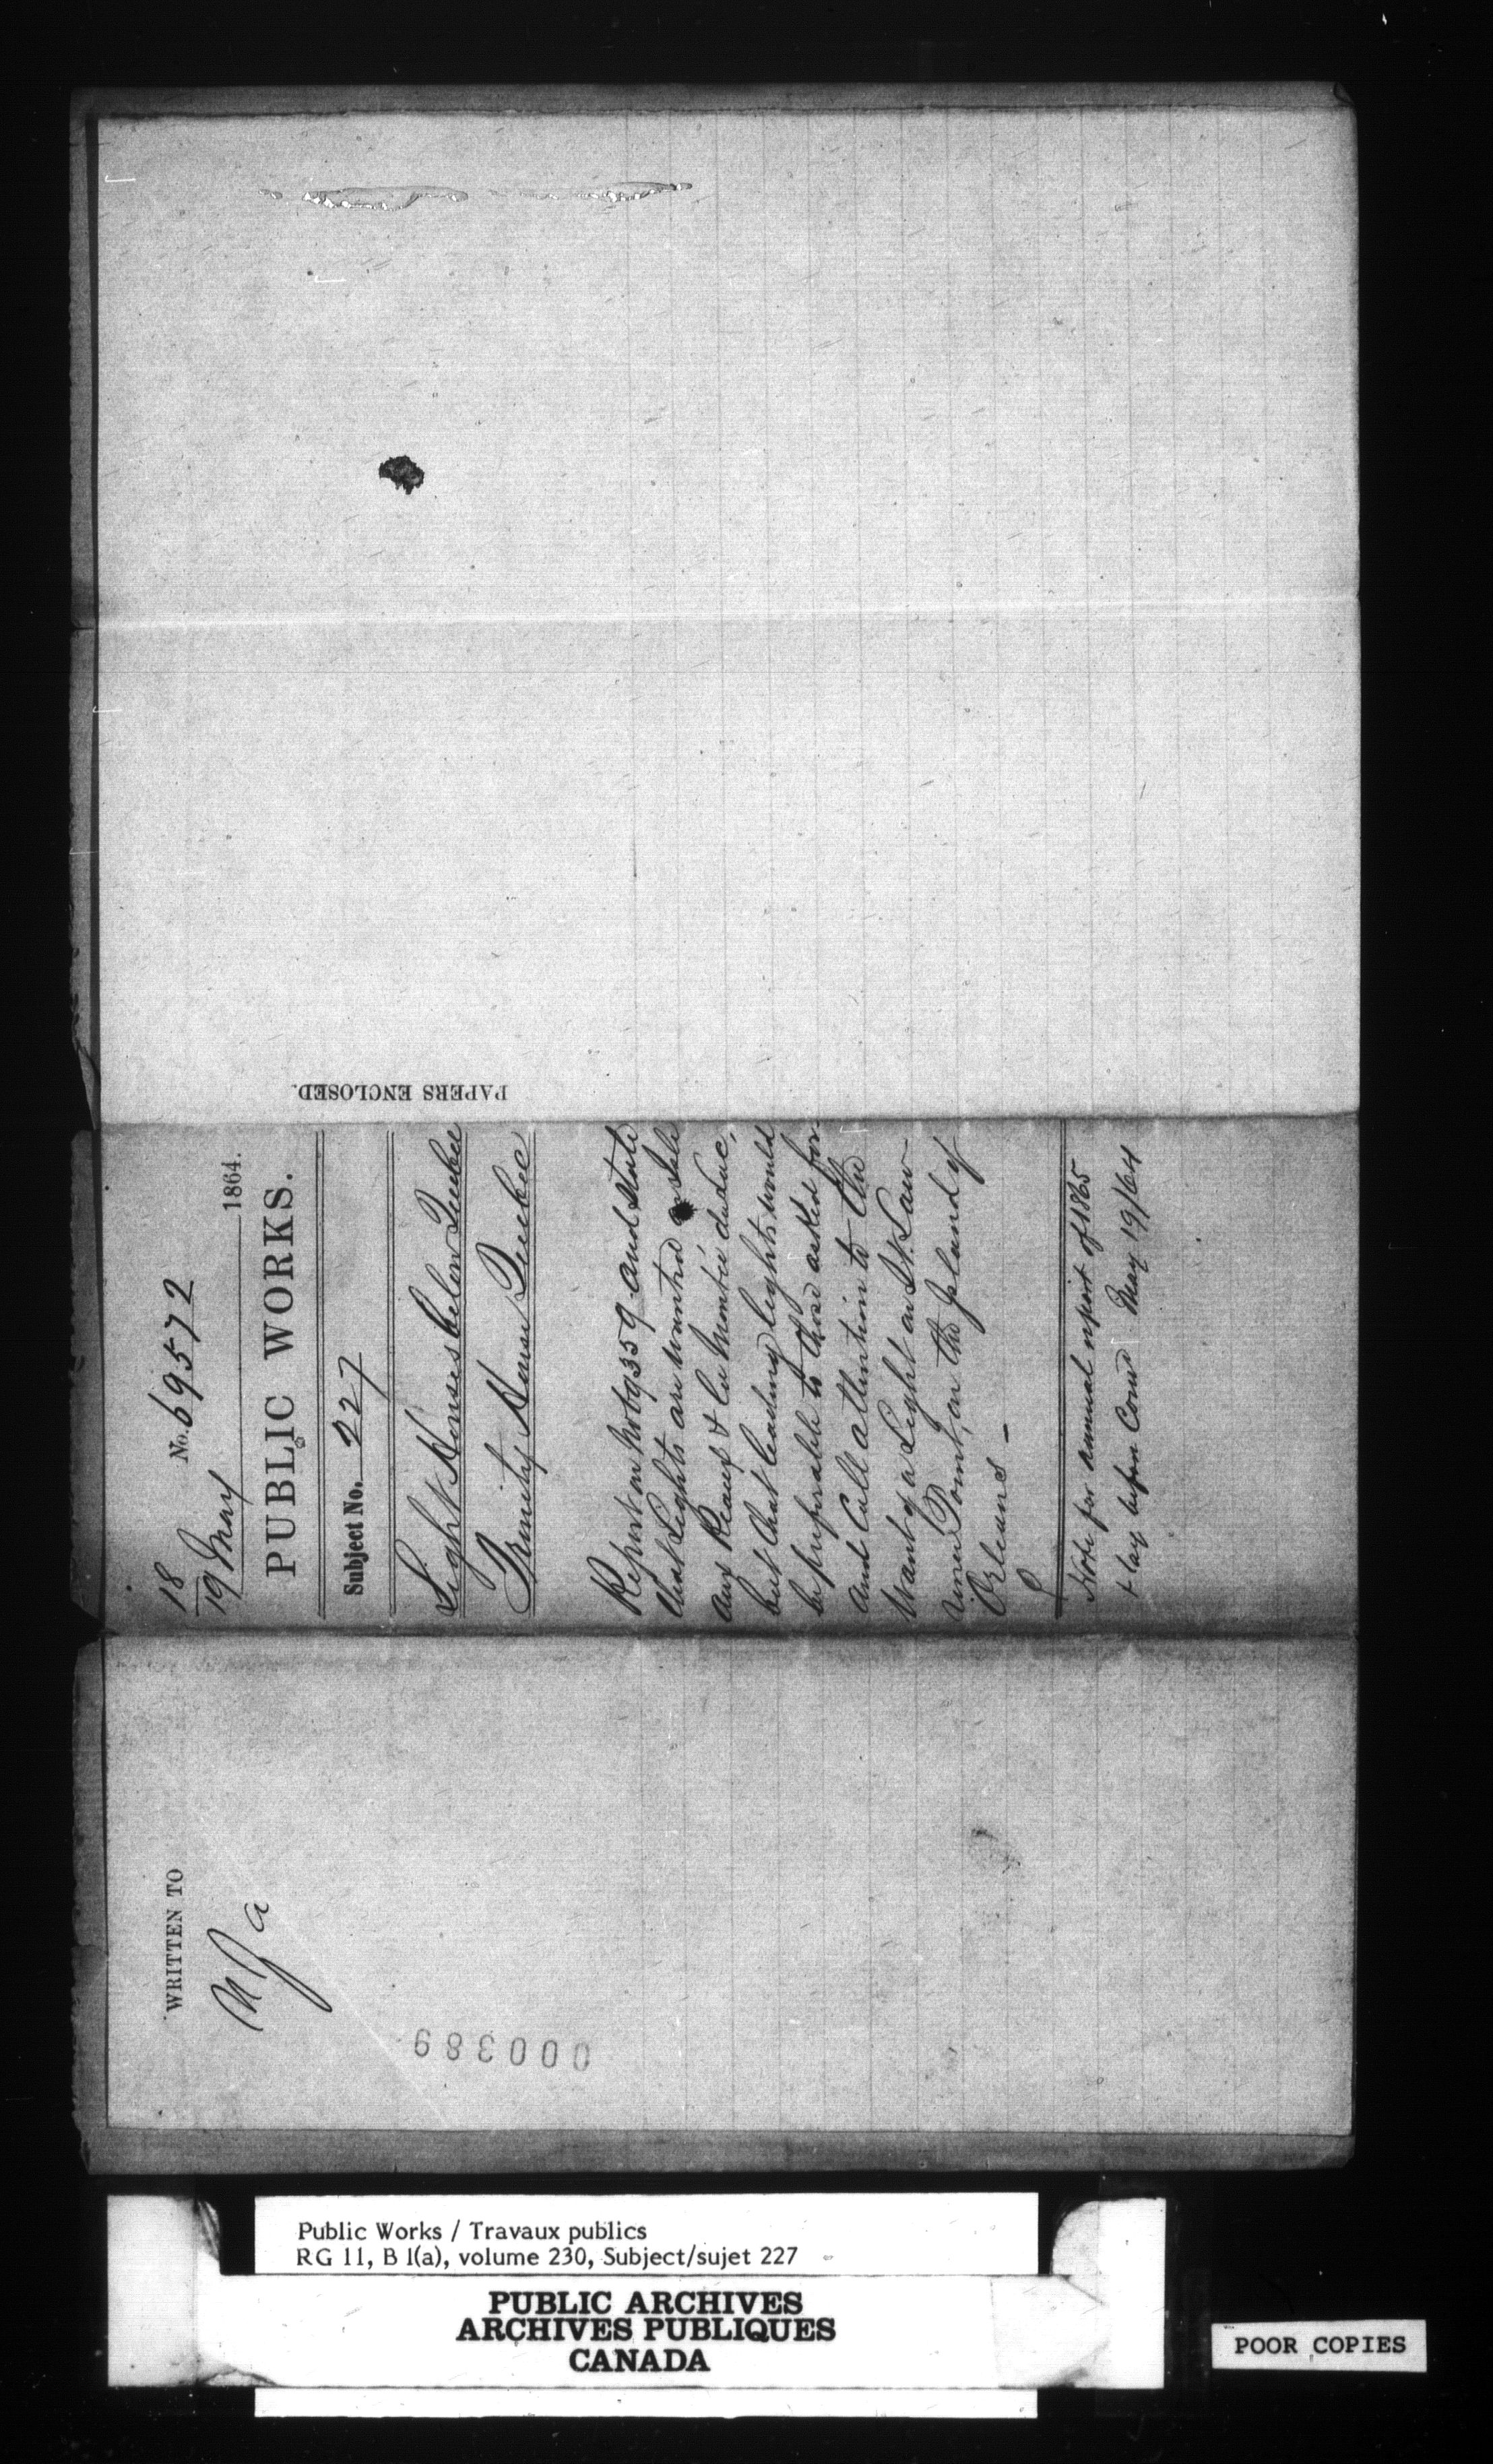 18
19 May
No. 69572
1864.
PUBLIC WORKS.
Subject No. 227
Light Houses below Quebec
Trinity House Quebec
Report on No 69359 and state
that Lights are wanted at Isle
aux Reaux & la Montée du Lac,
but that leading lights would
be preferable to those asked for
and call attention to the
want of a Light on St. Law-
rence Point, on the Island of
Orleans –
Note for annual report of 1865
& lay before Comr May 19/64
PAPERS ENCLOSED.
WRITTEN TO
000389
Public Works / Travaux publics
RG 11, B 1(a), volume 230, Subject/sujet 227
PUBLIC ARCHIVES
ARCHIVES PUBLIQUES
CANADA
POOR COPIES